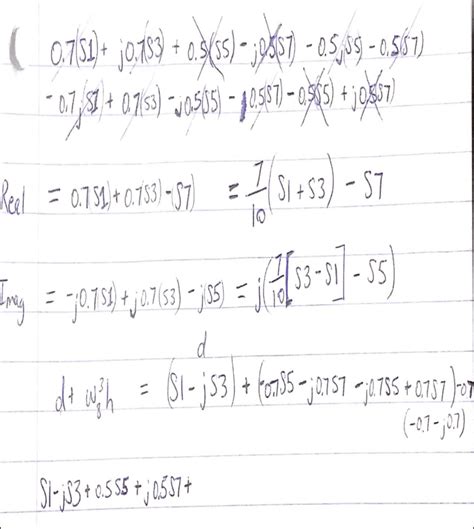 ( 0.7(S1) + j0.7(S3) + 0.5(S5) - j0.5(S7) - 0.5j(S5) - 0.5(S7)
- 0.7j(S1) + 0.7(S3) - j0.5(S5) - 0.5(S7) - 0.5(S5) + j0.5(S7)
Real = 0.7(S1) + 0.7(S3) - S7) = 7/10 (S1 + S3) - S7
Imag = -j0.7(S1) + j0.7(S3) - j(S5) = j(7/10 [S3 - S1] - S5)
d
d + w₈³h = (S1 - jS3) + (-0.7S5 - j0.7S7 - j0.7S5 + 0.7S7)
(-0.7 - j0.7)
S1 - jS3 + 0.5S5 + j0.5S7 +